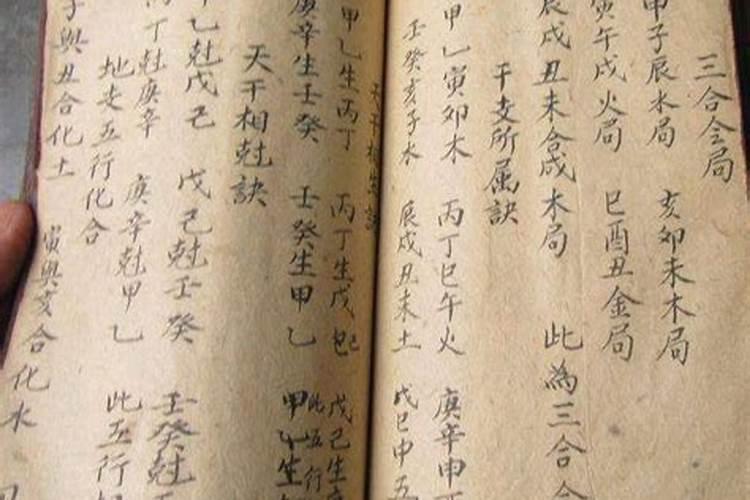 三合会局
申子辰水局 亥卯未木局
寅午戌火局 巳酉丑金局
辰戌丑未合成木局 此為三合会
干支所属訣
甲乙寅卯木 丙丁巳午火 庚辛申
壬癸亥子水 辰戌丑未土 戊巳申五
天干相生訣
甲乙生丙丁 丙丁生戊己 戊己生
庚辛生壬癸 壬癸生甲乙 甲乙生
此五行
天干相尅訣
乙尅戊己 戊己尅壬癸 壬癸尅
丁尅庚辛 庚辛尅甲乙 此五行
地支五行化合
子與丑合化土 寅與亥合化水